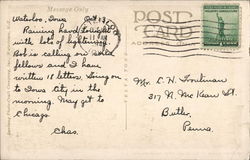 Message Only
POST
CARD
Waterloo, Iowa Oct.
Raining hard tonight
with lots of lightning.
Bob is calling on some
fellows and I have
written 18 letters. Going on
to Iowa City in the
morning. May get to
Chicago.
Chas.
Mr. C. H.
317 N. McKean St.
Butler,
Penna.